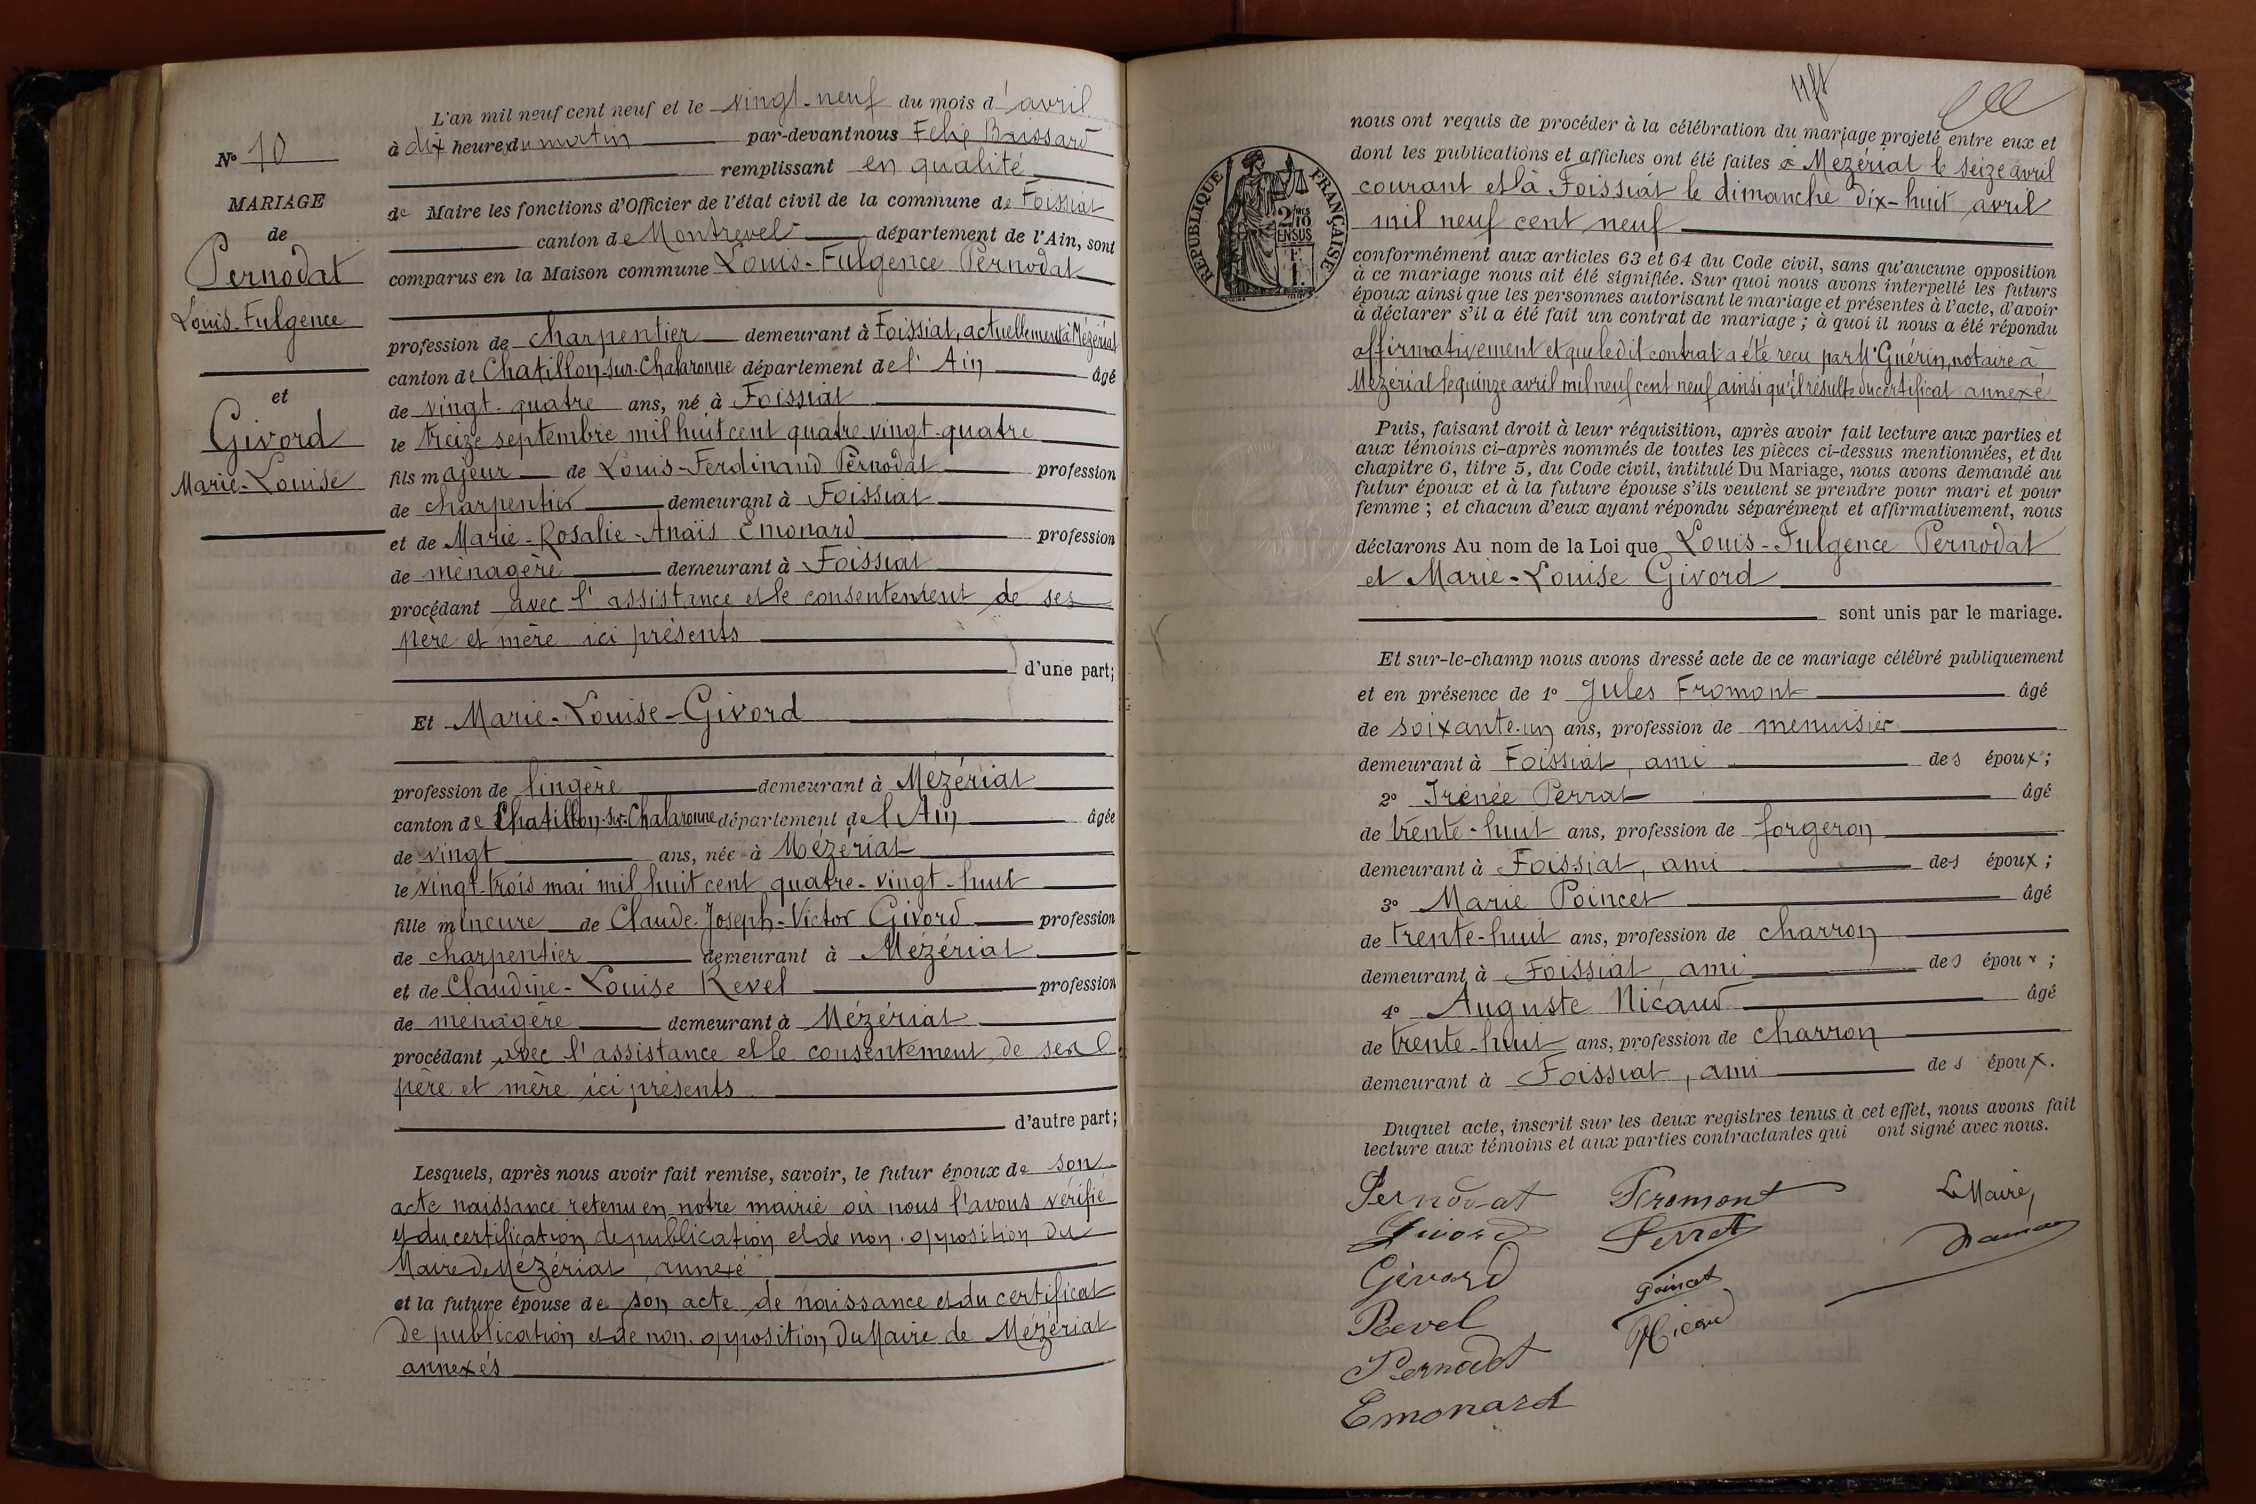 L'an mil neuf cent neuf et le vingt-neuf du mois d'avril
à dix heures du matin par-devant nous Félix Brissard
remplissant en qualité
de Maire les fonctions d'Officier de l'état civil de la commune de Foissiat
canton de Montrevel département de l'Ain, sont
comparus en la Maison commune Louis-Fulgence Pernodat
profession de charpentier demeurant à Foissiat, actuellement à Mézériat
canton de Chatillon-sur-Chalaronne département de l'Ain âgé
de vingt-quatre ans, né à Foissiat
le treize septembre mil huit cent quatre vingt-quatre
fils majeur de Louis-Ferdinand Pernodat profession
de charpentier demeurant à Foissiat
et de Marie-Rosalie-Anaïs Emonard profession
de ménagère demeurant à Foissiat
procédant avec l'assistance et le consentement de ses
père et mère ici présents
d'une part;
Et Marie-Louise-Givord
profession de lingère demeurant à Mézériat
canton de Chatillon-sur-Chalaronne département de l'Ain âgée
de vingt ans, née à Mézériat
le vingt-trois mai mil huit cent quatre-vingt-huit
fille mineure de Claude-Joseph-Victor Givord profession
de charpentier demeurant à Mézériat
et de Claudine-Louise Revel profession
de ménagère demeurant à Mézériat
procédant avec l'assistance et le consentement de ses
père et mère ici présents
d'autre part;
Lesquels, après nous avoir fait remise, savoir, le futur époux de son
acte naissance retenu en notre mairie où nous l'avons vérifié
et du certification de publication et de non-opposition du
Maire de Mézériat, annexé
et la future épouse de son acte de naissance et du certificat
de publication et de non-opposition du Maire de Mézériat
annexés
N° 10
MARIAGE
de
Pernodat
Louis-Fulgence
et
Givord
Marie-Louise
nous ont requis de procéder à la célébration du mariage projeté entre eux et
dont les publications et affiches ont été faites à Mézériat le seize avril
courant et à Foissiat le dimanche dix-huit avril
mil neuf cent neuf
RÉPUBLIQUE FRANÇAISE
2/10
EN SUS
conformément aux articles 63 et 64 du Code civil, sans qu'aucune opposition
à ce mariage nous ait été signifiée. Sur quoi nous avons interpellé les futurs
époux ainsi que les personnes autorisant le mariage et présentes à l'acte, d'avoir
à déclarer s'il a été fait un contrat de mariage; à quoi il nous a été répondu
affirmativement et que le dit contrat a été reçu par Me Guérin, notaire à
Mézériat le quinze avril mil neuf cent neuf ainsi qu'il résulte du certificat annexé
Puis, faisant droit à leur réquisition, après avoir fait lecture aux parties et
aux témoins ci-après nommés de toutes les pièces ci-dessus mentionnées, et du
chapitre 6, titre 5, du Code civil, intitulé Du Mariage, nous avons demandé au
futur époux et à la future épouse s'ils veulent se prendre pour mari et pour
femme; et chacun d'eux ayant répondu séparément et affirmativement, nous
déclarons Au nom de la Loi que Louis-Fulgence Pernodat
et Marie-Louise Givord
sont unis par le mariage.
Et sur-le-champ nous avons dressé acte de ce mariage célébré publiquement
et en présence de 1° Jules Fromont âgé
de soixante-un ans, profession de menuisier
demeurant à Foissiat, ami des époux;
2° Irénée Perrat âgé
de trente-huit ans, profession de forgeron
demeurant à Foissiat, ami des époux;
3° Marie Poincet âgé
de trente-huit ans, profession de charron
demeurant à Foissiat, ami des époux;
4° Auguste Nicaud âgé
de trente-huit ans, profession de charron
demeurant à Foissiat, ami des époux.
Duquel acte, inscrit sur les deux registres tenus à cet effet, nous avons fait
lecture aux témoins et aux parties contractantes qui ont signé avec nous.
Pernodat Fromont Le Maire,
Givord Perrat
Givord Poincet
Revel Nicaud
Pernodat
Emonard